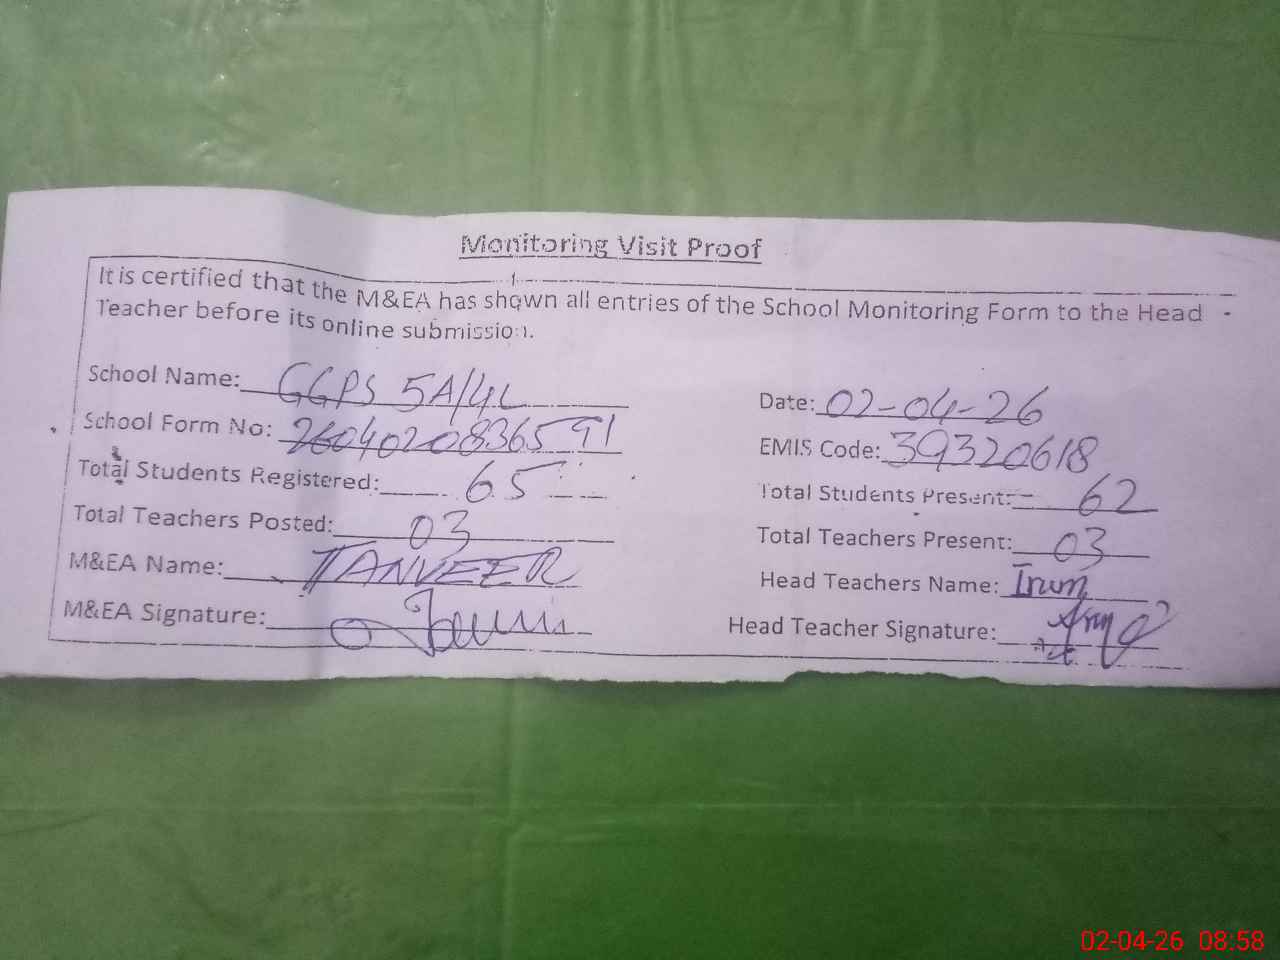 Monitoring Visit Proof
It is certified that the M&EA has shown all entries of the School Monitoring Form to the Head
Teacher before its online submission.
School Name: GGPS 5A/4L
Date: 02-04-26
School Form No: 2604020836591
EMIS Code: 39320618
Total Students Registered: 65
Total Students Present: 62
Total Teachers Posted: 03
Total Teachers Present: 03
M&EA Name: TANVEER
Head Teachers Name: Irum
M&EA Signature:
Head Teacher Signature:
02-04-26 08:58